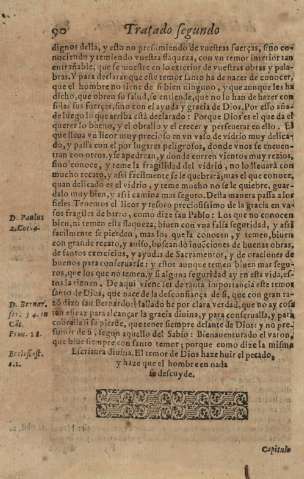 90 Tratado segundo
dignos della, y esto no presumiendo de vuestras fuerças, sino co-
nociendo y temiendo vuestra flaqueza, con vn temor interior tan
entrañable, que se muestre en lo exterior de vuestras obras y pala-
bras. Y para declarar que este temor santo ha de nacer de conocer,
que el hombre no tiene de si bien ninguno, y que aunque les ha
dicho, que obren su salud, se entiende, que no lo han de hazer con
solas sus fuerças, sino con el ayuda y gracia de Dios. Por esso aña-
de luego lo que arriba està declarado: Porque Dios es el que da el
querer lo bueno, y el obrallo y el crecer y perseuerar en ello. El
que lleua vn licor muy precioso en vn vaso de vidrio muy delica-
do, y passa con el por lugares peligrosos, donde vnos se encuen-
tran con otros, y se apedrean, y donde corren vientos muy rezios,
sino conoce, y teme la fragilidad del vidrio, no lo lleuarà con
mucho recato, y assi facilmente se le quebrarà; mas el que conoce,
quan delicado es el vidrio, y teme mucho no se le quiebre, guar-
dalo muy bien, y assi camina mas seguro. Desta manera passa a los
fieles. Tenemos el licor y tesoro preciosissimo de la gracia en va-
D. Paulus sos fragiles de barro, como dize san Pablo: Los que no conocen
2. Cor. 4. bien, ni temen esta flaqueza, biuen con vna falsa seguridad, y assi
facilmente se pierden, mas los que la conocen, y temen, biuen
con grande recato, y auiso, buscando inuenciones de buenas obras,
de santos exercicios, y ayudas de Sacramentos, y de oraciones de
buenos para conseruarse: y estos aunque temen biuen mas segu-
ros, que los que no temen, y si alguna seguridad ay en esta vida, es-
tos la tienen. De aqui viene ser de tanta importancia este temor
santo de Dios, que nace de la desconfiança de si, que con gran ra-
D. Bernar. zon dixo san Bernardo: He hallado por clara verdad, que no ay cosa
ser. 54. in tan eficaz para alcançar la gracia diuina, y para conserualla, y para
Cāt. cobralla si se pierde, que tener siempre delante de Dios y no pre-
Prou. 28. sumir de si, segun aquello del Sabio: Bienauenturado el varon,
que biue siempre con santo temor; porque como dize la misma
Ecclesiast. Escritura diuina. El temor de Dios haze huir el pecado,
1. y haze que el hombre en nada
se descuyde.
Capitulo